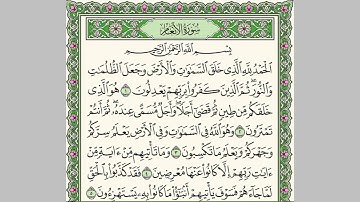 سُورَةُ الأَنْعَامِ
بِسْمِ اللَّهِ الرَّحْمَٰنِ الرَّحِيمِ
الْحَمْدُ لِلَّهِ الَّذِي خَلَقَ السَّمَاوَاتِ وَالْأَرْضَ وَجَعَلَ الظُّلُمَاتِ
وَالنُّورَ ثُمَّ الَّذِينَ كَفَرُوا بِرَبِّهِمْ يَعْدِلُونَ ١ هُوَ الَّذِي
خَلَقَكُم مِّن طِينٍ ثُمَّ قَضَىٰ أَجَلًا وَأَجَلٌ مُّسَمًّى عِندَهُ ثُمَّ أَنتُمْ
تَمْتَرُونَ ٢ وَهُوَ اللَّهُ فِي السَّمَاوَاتِ وَفِي الْأَرْضِ يَعْلَمُ سِرَّكُمْ
وَجَهْرَكُمْ وَيَعْلَمُ مَا تَكْسِبُونَ ٣ وَمَا تَأْتِيهِم مِّنْ آيَةٍ مِّنْ
آيَاتِ رَبِّهِمْ إِلَّا كَانُوا عَنْهَا مُعْرِضِينَ ٤ فَقَدْ كَذَّبُوا بِالْحَقِّ
لَمَّا جَاءَهُمْ فَسَوْفَ يَأْتِيهِمْ أَنبَاءُ مَا كَانُوا بِهِ يَسْتَهْزِئُونَ ٥